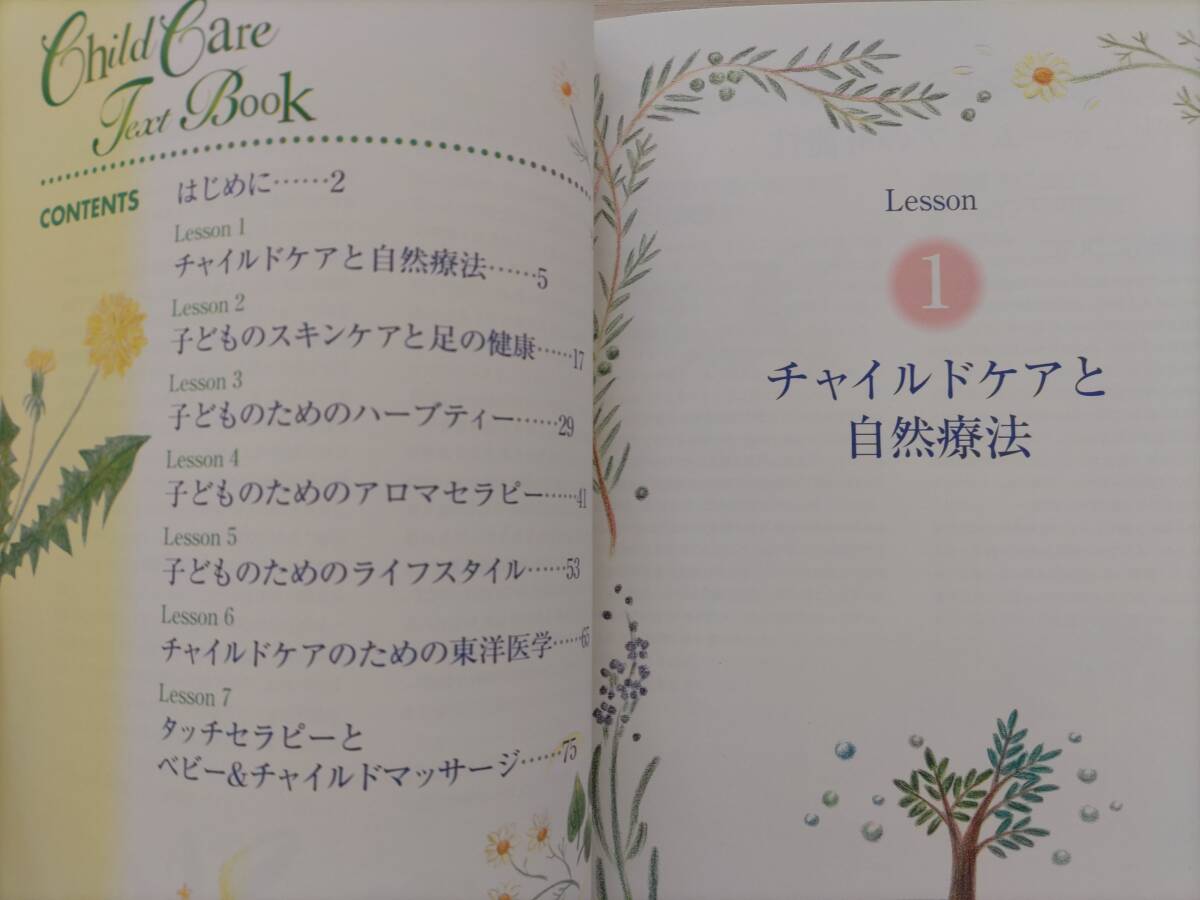 Child Care
Text Book
CONTENTS
はじめに……2
Lesson 1
チャイルドケアと自然療法……5
Lesson 2
子どものスキンケアと足の健康……17
Lesson 3
子どものためのハーブティー……29
Lesson 4
子どものためのアロマセラピー……41
Lesson 5
子どものためのライフスタイル……53
Lesson 6
チャイルドケアのための東洋医学……65
Lesson 7
タッチセラピーと
ベビー&チャイルドマッサージ……75
Lesson
1
チャイルドケアと
自然療法